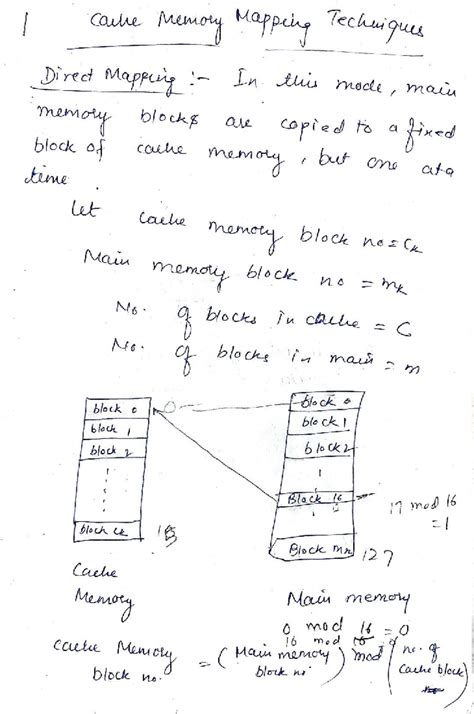 1
Cache Memory Mapping Techniques
Direct Mapping :- In this mode, main
memory blocks are copied to a fixed
block of cache memory, but one at a
time
Let cache memory block no = Ck
Main memory block no = mk
No. of blocks in cache = C
No. of blocks in main = m
block 0
block 1
block 2
block Ck
15
0
block 0
block 1
block 2
Block 16
17 mod 16
= 1
Block mk
127
Cache
Memory
Main memory
0 mod 16 = 0
16 mod 16
Cache Memory
block no.
= (Main memory
block no) mod (no. of
cache block)